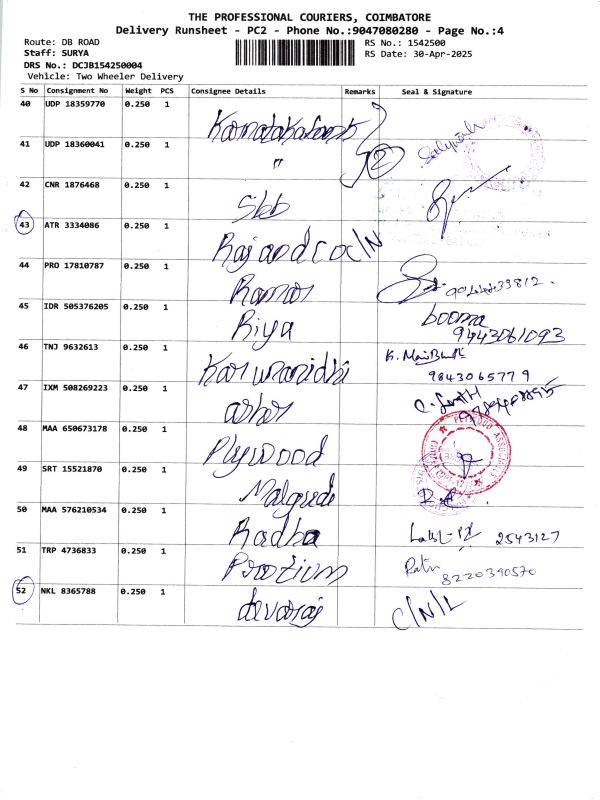 THE PROFESSIONAL COURIERS, COIMBATORE
Delivery Runsheet - PC2 - Phone No.:9047080280 - Page No.:4
Route: DB ROAD
Staff: SURYA
DRS No.: DCJB154250004
Vehicle: Two Wheeler Delivery
RS No.: 1542500
RS Date: 30-Apr-2025
S No Consignment No Weight PCS Consignee Details Remarks Seal & Signature
40 UDP 18359770 0.250 1
41 UDP 18360041 0.250 1 " 2
42 CNR 1876468 0.250 1 Sbb
43 ATR 3334086 0.250 1
44 PRO 17810787 0.250 1 Raman
45 IDR 505376205 0.250 1 Riya booma
9443061093
46 TNJ 9632613 0.250 1 Karunanidhi
9843065779
47 IXM 508269223 0.250 1
48 MAA 650673178 0.250 1 Plywood
49 SRT 15521870 0.250 1 Malgudi
50 MAA 576210534 0.250 1 Radha 2543127
51 TRP 4736833 0.250 1
8220390570
52 NKL 8365788 0.250 1 devaraj C/N/L